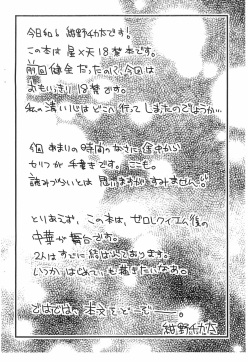 今日和!! 紺野ちかたです!
この本は星×天18禁本です。
前回健全だったのに、今回は
おもいきり18禁です。
私の清い心はどこへ行ってしまったのでしょうか…
今回、あまりの時間のなさに(途中から)
セリフが手書きです。ここも。
読みづらいとは思いますがすみません。
とりあえず、この本は、ゼロレクイエム後の
中華が舞台です。
2人はすでに結ばれております。
いつか、はじめても描きたいなあ。
ではでは、本文をどーぞー。